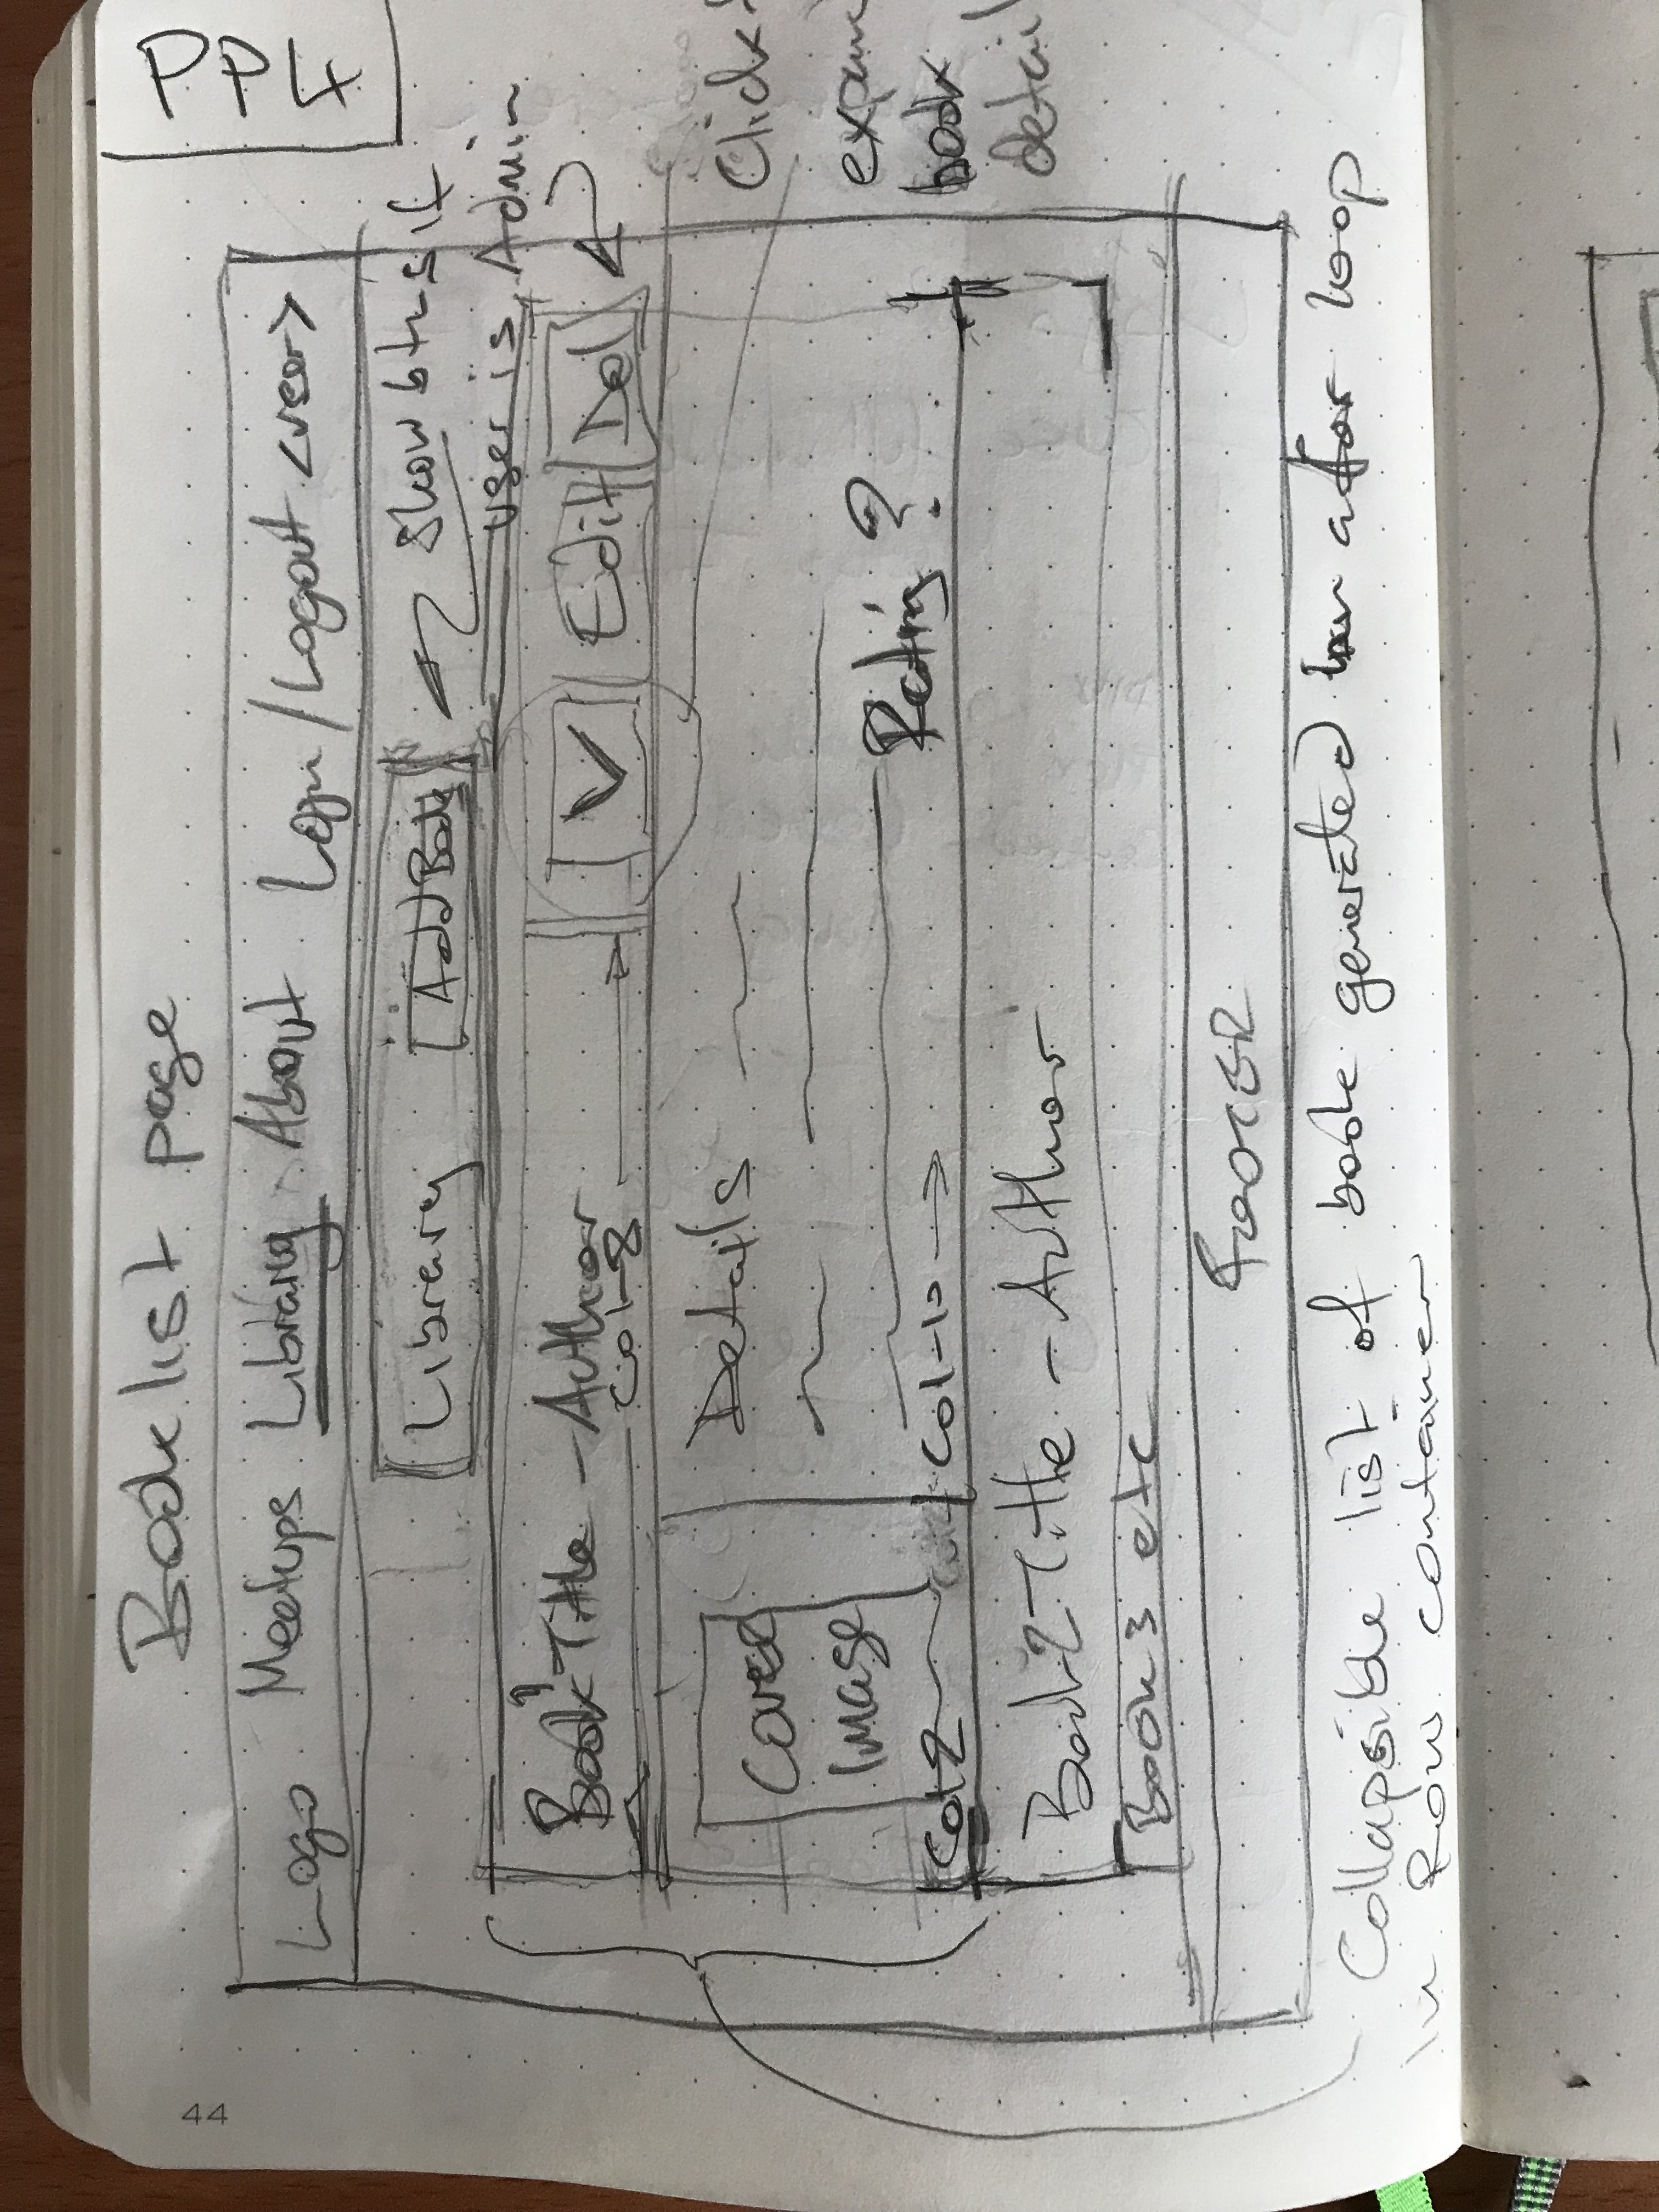 PP4
Book list page
Logo Meetups Library About Login/Logout <user>
Library Add Book Show btns if
user is Admin
Book 1 Title - Author V Edit Del
col-8
Click
expand
book
detail
Details
Cover
Image
Rating?
col 2 col-10
Book 2 Title - Author
Book 3 etc
FOOTER
Collapsible list of books generated in a for loop
in Row container
44